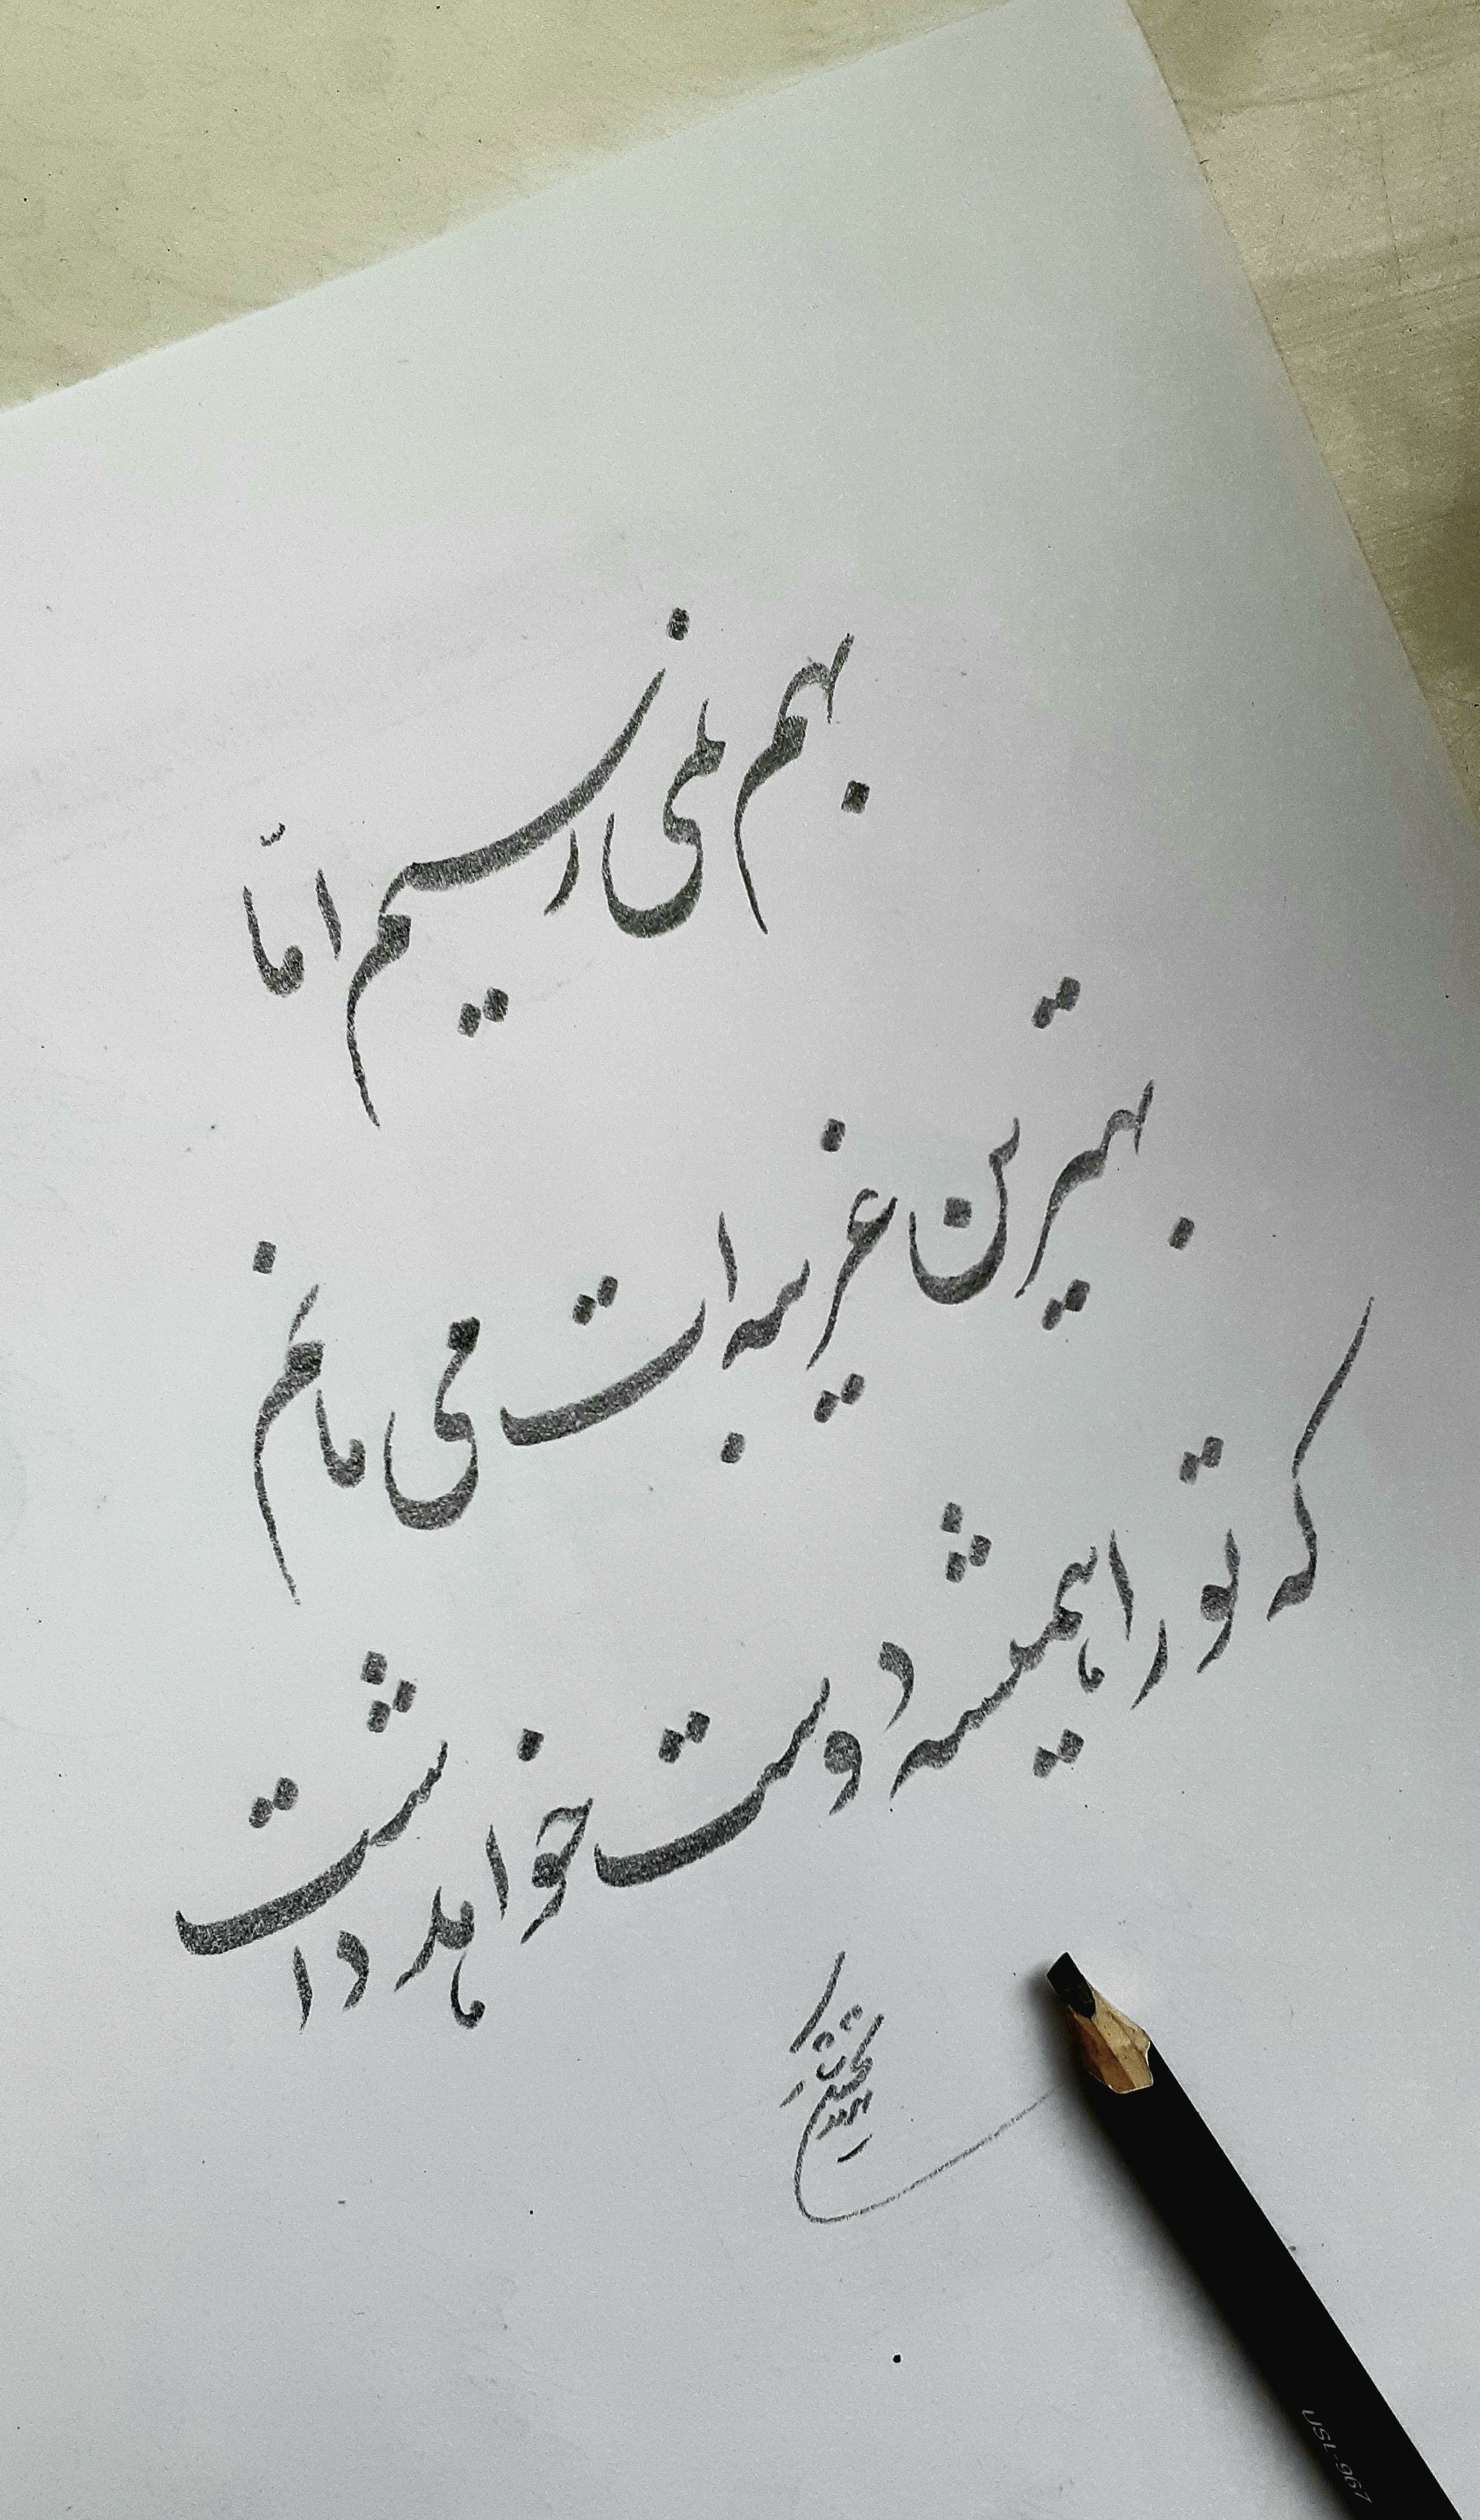 بهم نمی رسیم امّا
بهترین غریبه ات می مانم
که تو را همیشه دوست خواهد داشت
USL-967